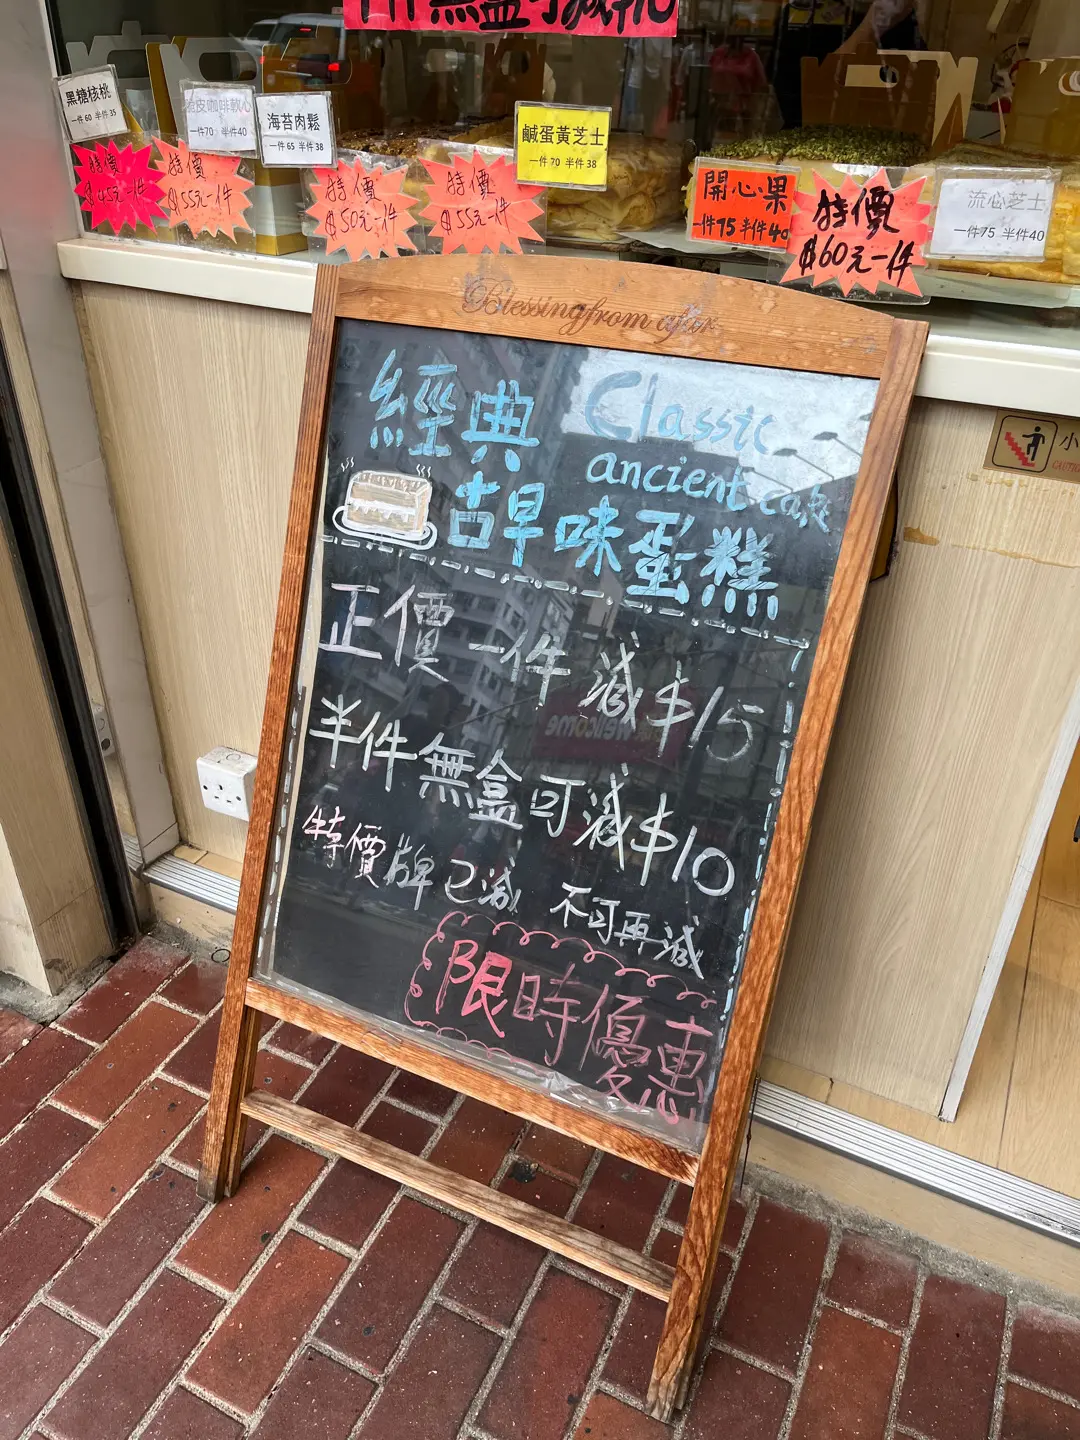 無盒可減
黑糖核桃
一件 60 半件 35
特價
$45元一件
皮咖啡軟心
一件70 半件40
特價
$55元一件
海苔肉鬆
一件 65 半件 38
特價
$50元一件
特價
$55元一件
鹹蛋黃芝士
一件 70 半件 38
開心果
一件75 半件40
特價
$60元一件
流心芝士
一件75 半件40
Blessing from afar
經典 Classic
ancient cake
古早味蛋糕
正價一件減$15
半件無盒可減$10
特價牌已減 不可再減
限時優惠
小
CAUTION
Welcome